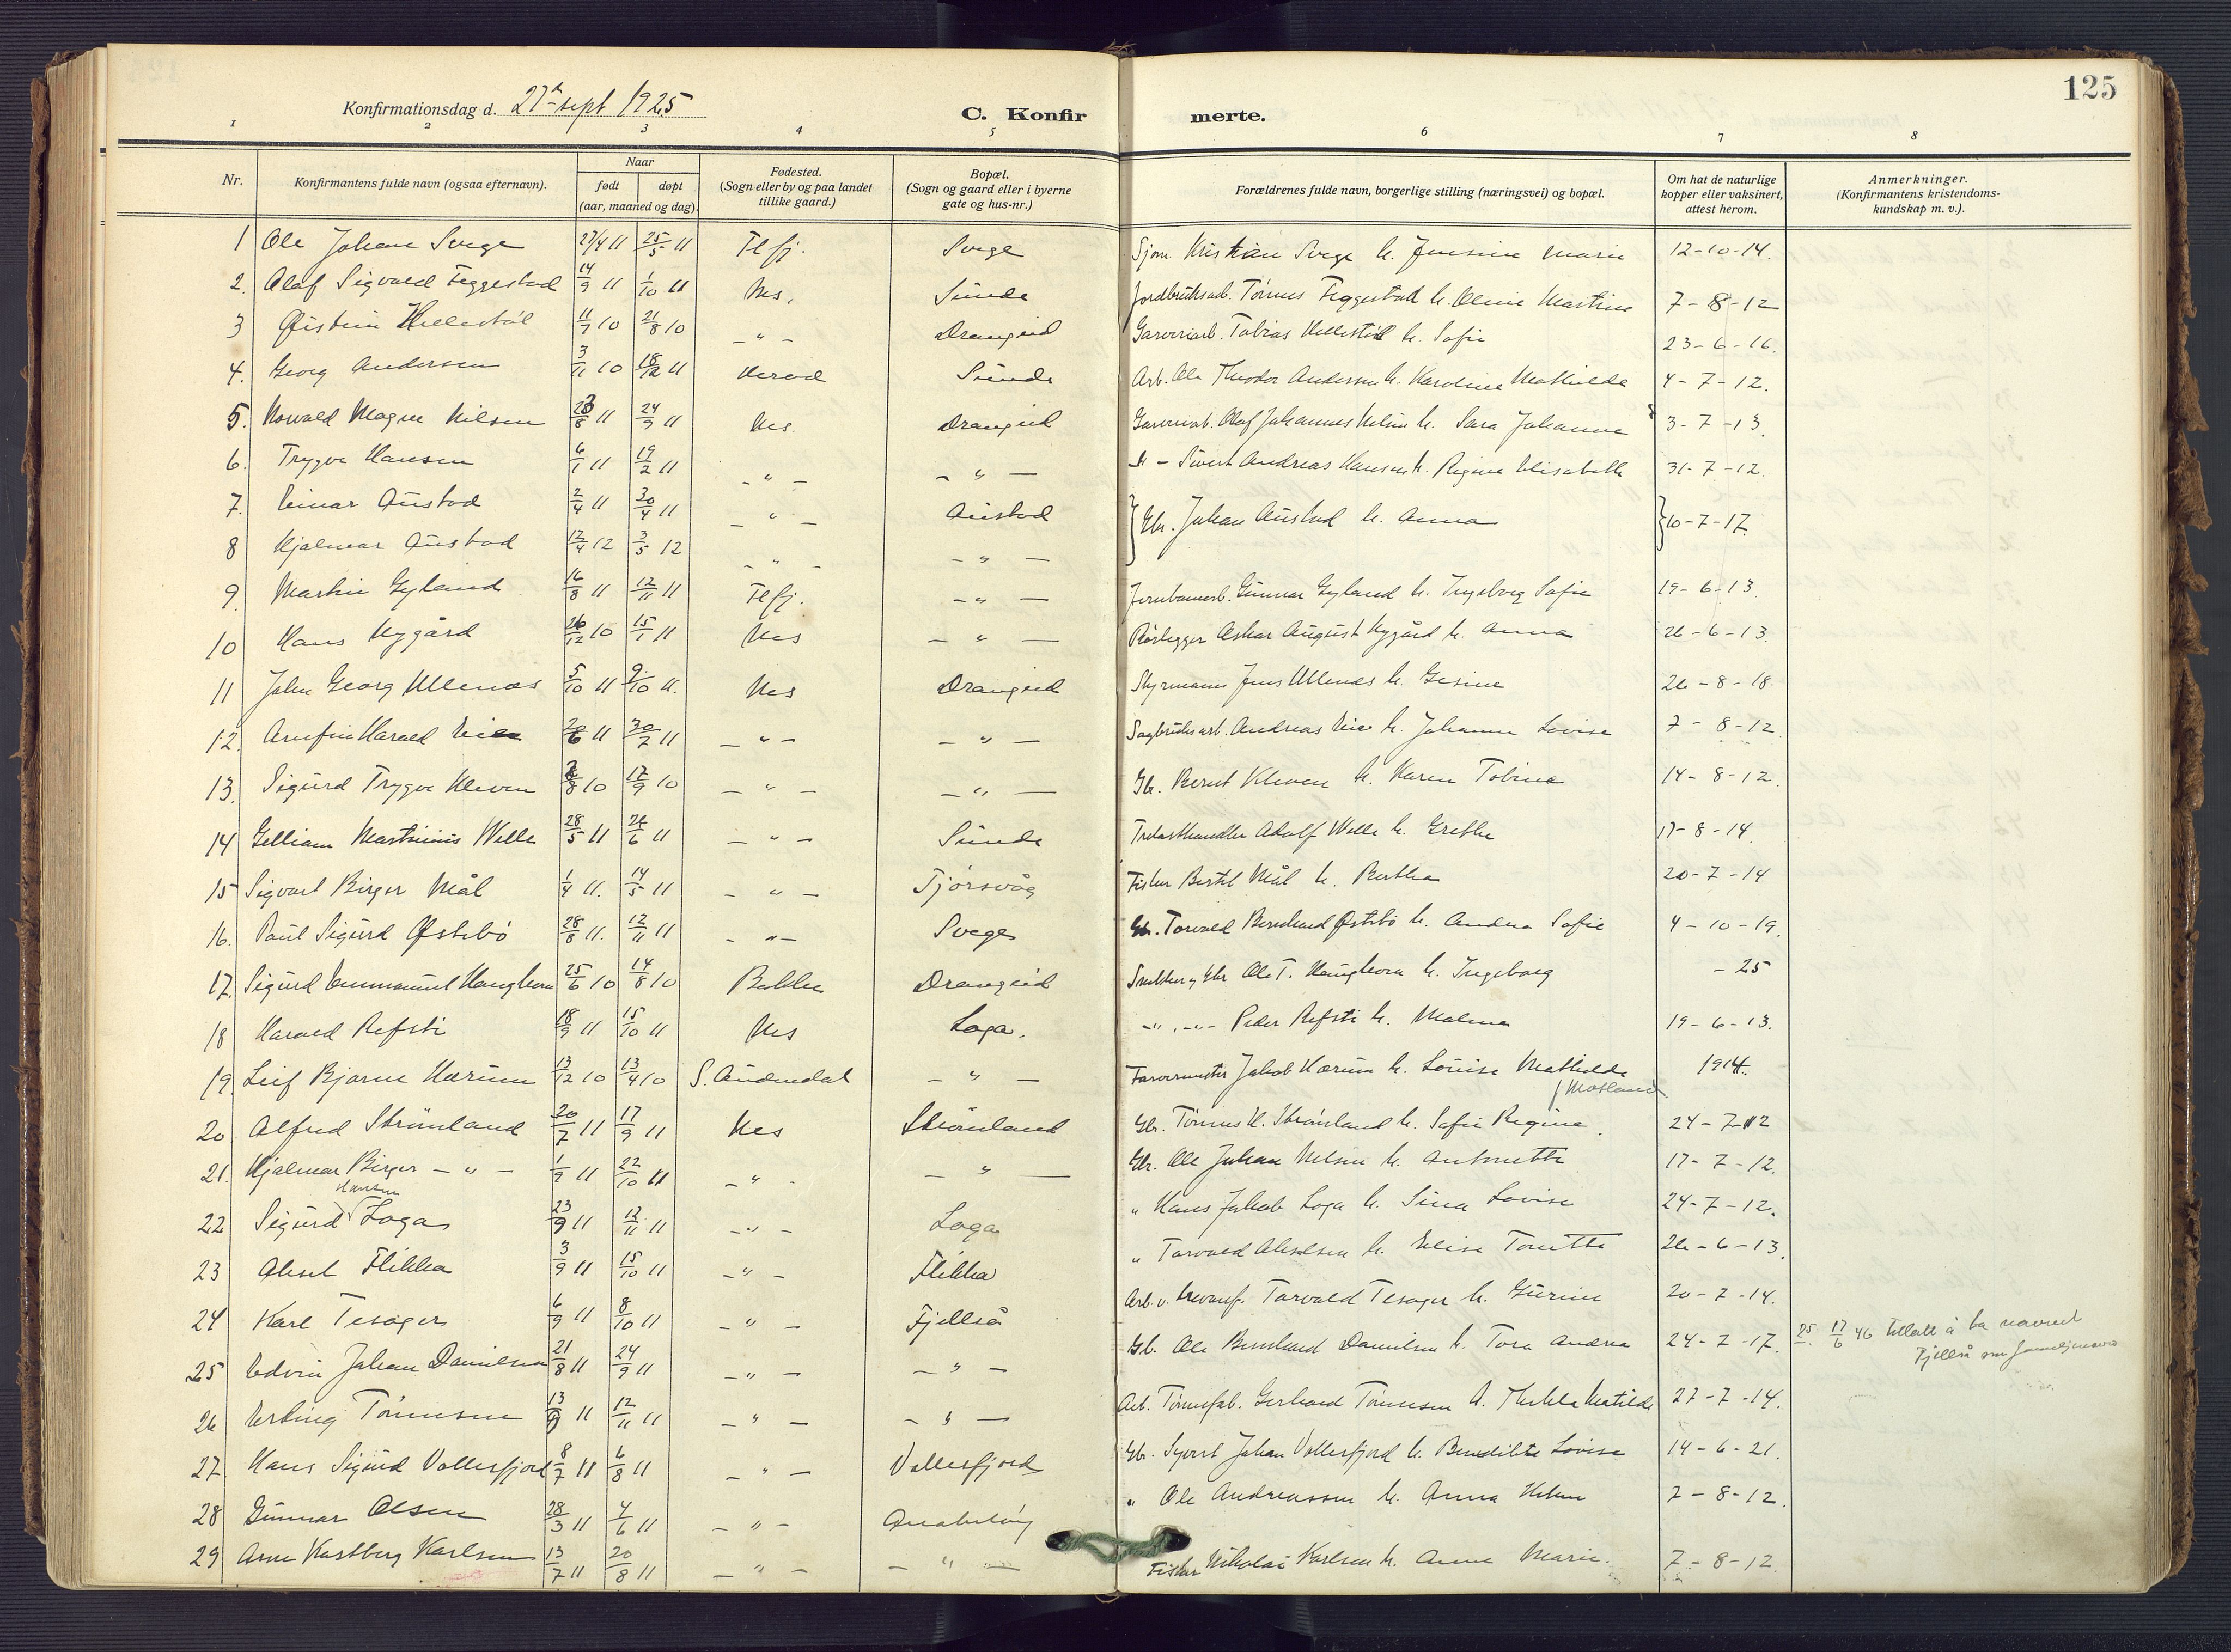 125
Konfirmationsdag d. 27de sept 1925
C. Konfirmerte.
1 2 3 4 5 6 7 8
Nr. Konfirmantens fulde navn (ogsaa efternavn). Naar født døpt (aar, maaned og dag). Fødested. (Sogn eller by og paa landet tillike gaard.) Bopæl. (Sogn og gaard eller i byerne gate og hus-nr.) Forældrenes fulde navn, borgerlige stilling (næringsvei) og bopæl. Om hat de naturlige kopper eller vaksinert, attest herom. Anmerkninger. (Konfirmantens kristendomskundskap m. v.).
1 Ole Johan Svege 27/4 11 25/5 11 Flfj. Svege Sjøm. Kristian Svege h. Jensine Marie 12-10-14.
2. Olaf Sigvald Feggestad 14/9 11 1/10 11 Nes. Sunde Jordbruksarb. Tønnes Feggestad h. Oline Martine 7-8-12
3 Øistein Hellestøl 11/7 10 21/8 10 -"- Drangeid Garveriarb. Tobias Hellestøl h. Sofie 23-6-16.
4. Georg Andersen 3/11 10 18/12 11 Herad Sunde Arb. Ole Theodor Andersen h. Karoline Mathilde 4-7-12.
5. Norvald Magne Nilsen 23/8 11 24/9 11 Nes. Drangeid Garveriarb. Olaf Johannes Nilsen h. Sara Johanne 3-7-13.
6. Trygve Hansen 6/1 11 19/2 11 -"- -"- Sivert Andreas Hansen h. Regine Elisabeth 31-7-12.
7. Einar Austad 2/4 11 30/4 11 -"- Austad Gbr. Johan Austad h. Anna 10-7-17
8 Hjalmar Austad 12/4 12 3/5 12 -"- -"-
9. Martin Gyland 16/8 11 12/11 11 Flfj. -"- Jernbanearb. Gunnar Gyland h. Ingeborg Sofie 19-6-13.
10 Hans Nygård 26/12 10 15/1 11 Nes -"- Rørlegger Oskar August Nygård h. Anna 26-6-13.
11 John Georg Ullenæs 5/10 11 9/10 11. Nes Drangeid Styrmann Jens Ullenæs h. Gesine 26-8-18.
12. Arnfin Harald Eie 20/6 11 30/7 11 -"- -"- Sagbruksarb. Andreas Eie h. Johanne Lovise 7-8-12.
13. Sigurd Trygve Kleven 8 10 17/9 10 -"- -"- Gb. Bernt Kleven h. Karen Tobine 14-8-12.
14 Gelliam Martinius Welle 28/5 11 26/6 11 -"- Sunde Trelasthandler Adolf Welle h. Grethe 17-8-14.
15 Sigvart Birger Mål 1/4 11. 14/5 11 -"- Tjørsvåg Fisker Bertil Mål h. Bertha 20-7-14
16. Paul Sigurd Østebø 28/8 11. 12/11 11 -"- Svege Gb. Torvald Bernhard Østebø h. Andrea Sofie 4-10-19.
17. Sigurd Emmanuel Haughom 25/6 10 14/8 10 Bakke Drangeid Snekker og Gbr Ole T. Haughom h. Ingeborg -25
18 Harald Refsti 18/9 11 15/10 11 Nes Loga. -",-"- Peder Refsti h. Malena 19-6-13.
19. Leif Bjarne Hærum 13/12 10 13/4 10 S. Audnedal -"- Farvermester Jakob Hærum h. Louise Mathilde f Motland 1914.
20. Alfred Strømland 20/7 11 17/9 11 Nes Strømland Gb. Tønnes H. Strømland h. Sofie Regine. 24-7-12
21. Hjalmar Birger -"- 1/9 11 22/10 11 -"- -"- Gbr. Ole Johan Nilsen h. Antonette 17-7-12.
22 Sigurd Hansen Loga 23/9 11 12/11 11 -"- Loga " Hans Jakob Loga h. Sina Lovise 24-7-12.
23 Aksel Flikka 3/9 11 15/10 11 -"- Flikka " Torvald Akselsen h. Elise Tonette 26-6-13.
24 Karl Tesager 6/9 11 8/10 11 -"- Fjellså Arb. v. Torvald Tesager h. Gurine 20-7-14.
25 Edvin Johan Danielsen 21/8 11 24/9 11 -"- -"- Gb. Ole Bernhard Danielsen h. Tora Andrea 24-7-17. 25. 17/6 46 tillatt å ta navnet Fjellså som familjenavn
26 Erling Tønnesen 13/9 11 12/11 11 -"- -"- Arb. Tønnefab. Gerhard Tønnesen h. Thekla Matilde 27-7-14.
27 Hans Sigurd Vollesfjord 8/7 11 6/8 11 -"- Vollesfjord Gb. Syvert Johan Vollesfjord h. Bendikte Lovise 14-6-21.
28 Gunnar Olsen 28/3 11 4/6 11 -"- Anabeløy " Ole Andreassen h. Anna Helene 7-8-12.
29 Arne Kastberg Karlsen 13/7 11 20/8 11 -"- -"- Fisker Nikolai Karlsen h. Anne Marie. 7-8-12.